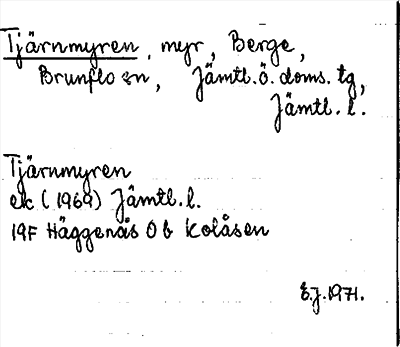 Tjärnmyren, myr, Berge,
Brunflo sn, Jämtl. ö. doms. tg,
Jämtl. l.
Tjärnmyren
ek (1969) Jämtl. l.
19F Häggenås 0b Kolåsen
E.J. 1971.